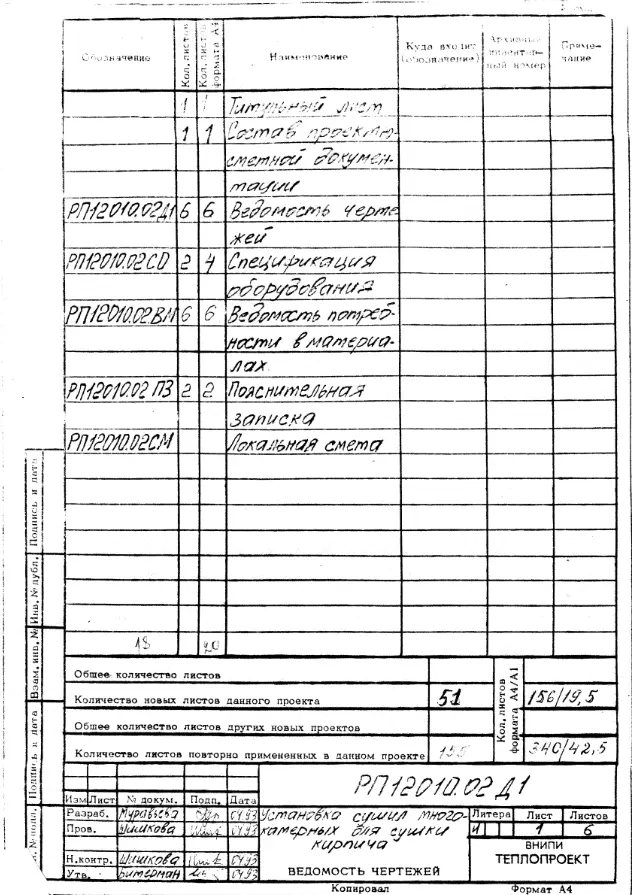 Обозначение Кол. листов Кол. листов формата А4 Наименование Куда входит (обозначение) Архивный инвентарный номер Примечание
1 1 Титульный лист
1 1 Состав проектно-
сметной докумен-
тации
РП12010.02Д1 6 6 Ведомость черте-
жей
РП12010.02СО 2 4 Спецификация
оборудования
РП12010.02ВМ 6 6 Ведомость потреб-
ности в материа-
лах
РП12010.02 ПЗ 2 2 Пояснительная
записка
РП12010.02СМ Локальная смета
18 20
Общее количество листов
Количество новых листов данного проекта 51 156/19,5
Общее количество листов других новых проектов
Количество листов повторно примененных в данном проекте 340/42,5
Кол. листов формата А4/А1
Подпись и дата
Инв. № дубл.
Взам. инв. №
Подпись и дата
РП12010.02 Д1
Изм Лист № докум. Подп. Дата
Разраб. Муравьева 04.93 Установка сушил много- Литера Лист Листов
Пров. Шишкова 04.93 камерных для сушки И 1 6
кирпича ВНИПИ
Н.контр. Шишкова 04.93 ТЕПЛОПРОЕКТ
Утв. 04.93 ВЕДОМОСТЬ ЧЕРТЕЖЕЙ
Копировал Формат А4